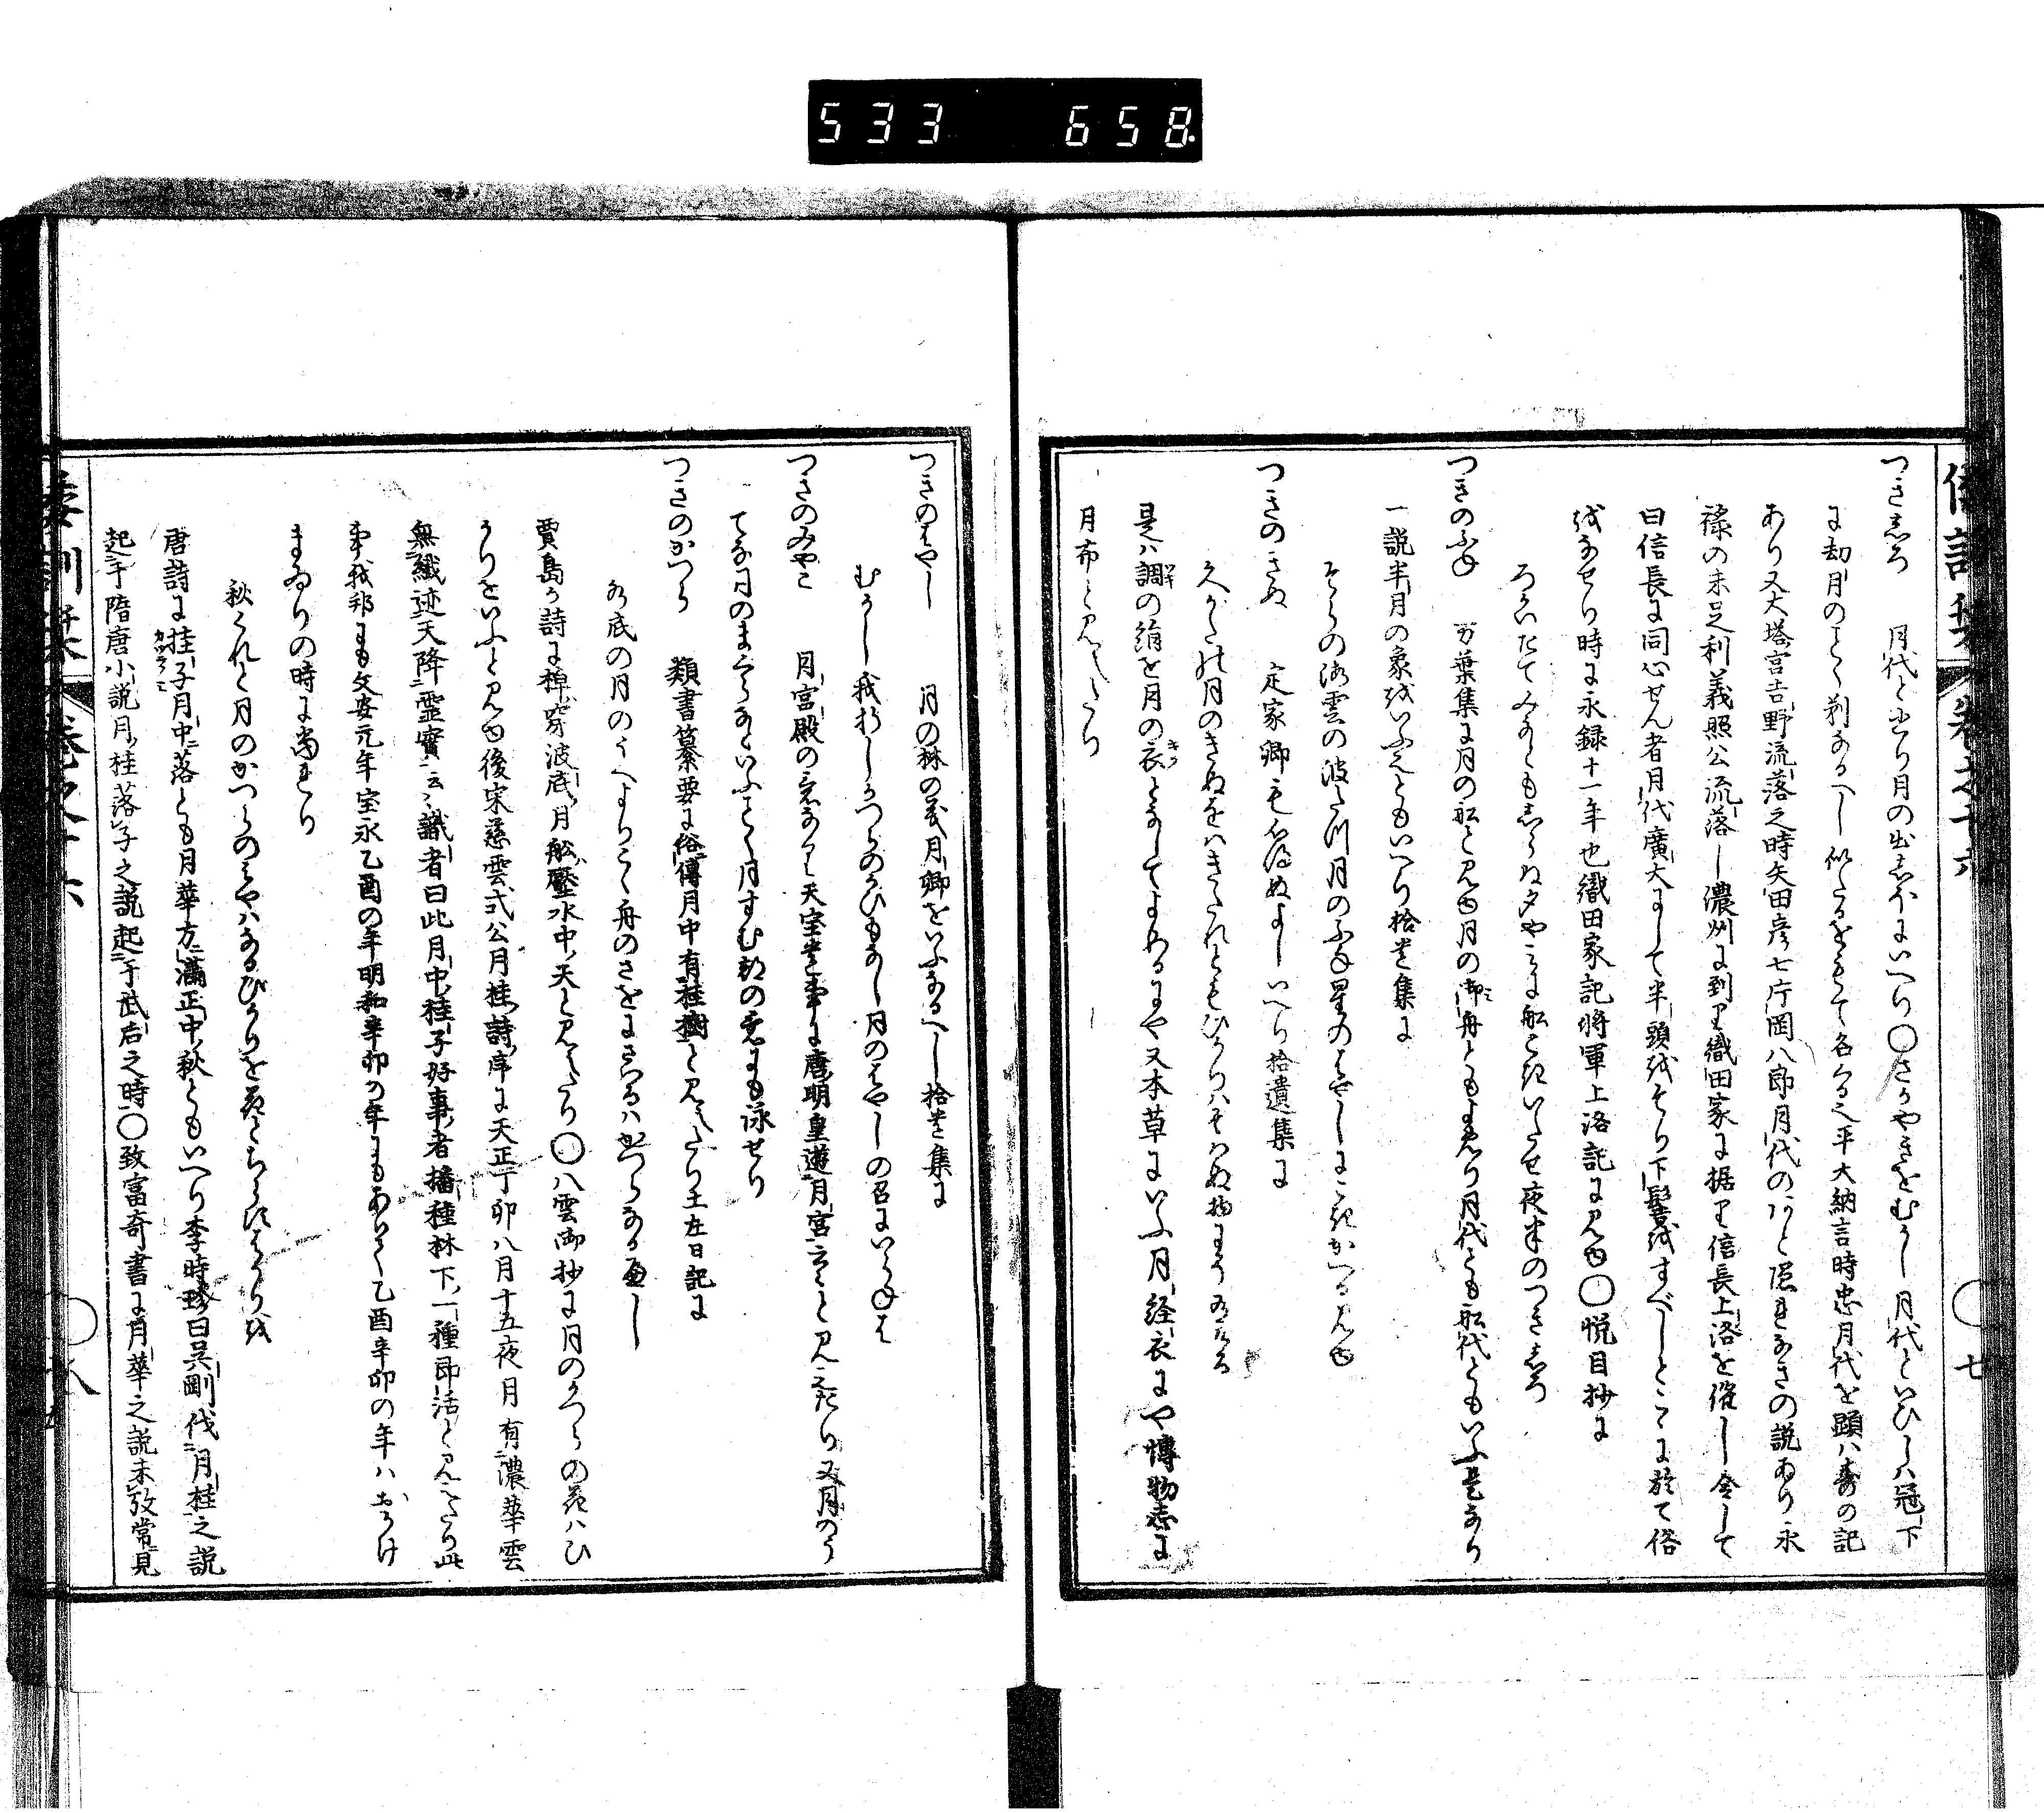 533 658
つきしろ 月代とかけり月の出しほにいへり〇さかやきをむかし月代といひしハ冠下
に劫月のことく剃なるへし似たるをもて名くる也平大納言時忠月代を顕ハすの記
あり又大塔宮吉野流落之時矢田彦七片岡八郎月代のあと隠れなきの説あり永
禄の末足利義照公流落し濃州に到り織田家に据り信長上洛を催し令して
曰信長に同心せん者月代廣大にして半頭をそり下鬢をすべしとこゝに於て俗
をなせり時に永録十一年也織田家記将軍上洛記に見ゆ〇悦目抄に
ろかいたてみなともしらぬ夕やミに船こきいたせ夜半のつきしろ
つきのふね 万葉集に月の船と見ゆ月の御舟ともよめり月代とも船代ともいふ是なり
一説半月の象をいふ也ともいへり拾遺集に
そらの海雲の波たつ月のふね星のはやしにこきかへる見ゆ
つきのきぬ 定家卿も心得ぬよしいへり拾遺集に
久かたの月のきぬをハきたれともひかりハそハぬ物にそ有ける
是ハ調の絹を月の衣となしてよめるにや又本草にいふ月経衣にや博物志に
月布と見えたり
倭訓栞 巻之十六 〇 七
つきのはやし 月の林の義月卿をいふなるへし拾遺集に
むかし我折しかつらのかひもなし月のはやしの召にいらねは
つきのみやこ 月宮殿の意なり天宝遺事に唐明皇遊月宮云々と見えたり又月のう
てな月のまなくなといふことく月すむ都の意にも詠せり
つきのかつら 類書纂要に俗傳月中有桂樹と見えたり土左日記に
水底の月のうへよりこく舟のさをにさはるハかつらなるへし
賈島か詩に棹穿波底月舩壓水中天と見えたり〇八雲御抄に月のかつらの花ハひ
かりをいふと見ゆ後宋慈雲式公月桂詩序に天正丁卯八月十五夜月有濃華雲
無纎迹天降霊實云々識者曰此月中桂子好事者播種林下一種即活と見えたり此
事我邦にも文安元年宝永乙酉の年明和辛卯の年にもありて乙酉辛卯の年ハおかけ
まゐりの時に当れり
秋くれと月のかつらのミやハなるひかりを花とちらすはかりを
唐詩に桂子月中落とも月華方滿正中秋ともいへり李時珍曰呉剛伐月桂之説
起于隋唐小説月桂落子之説起于武后之時〇致富奇書に月華之説未攷常見
倭訓栞 巻之十六